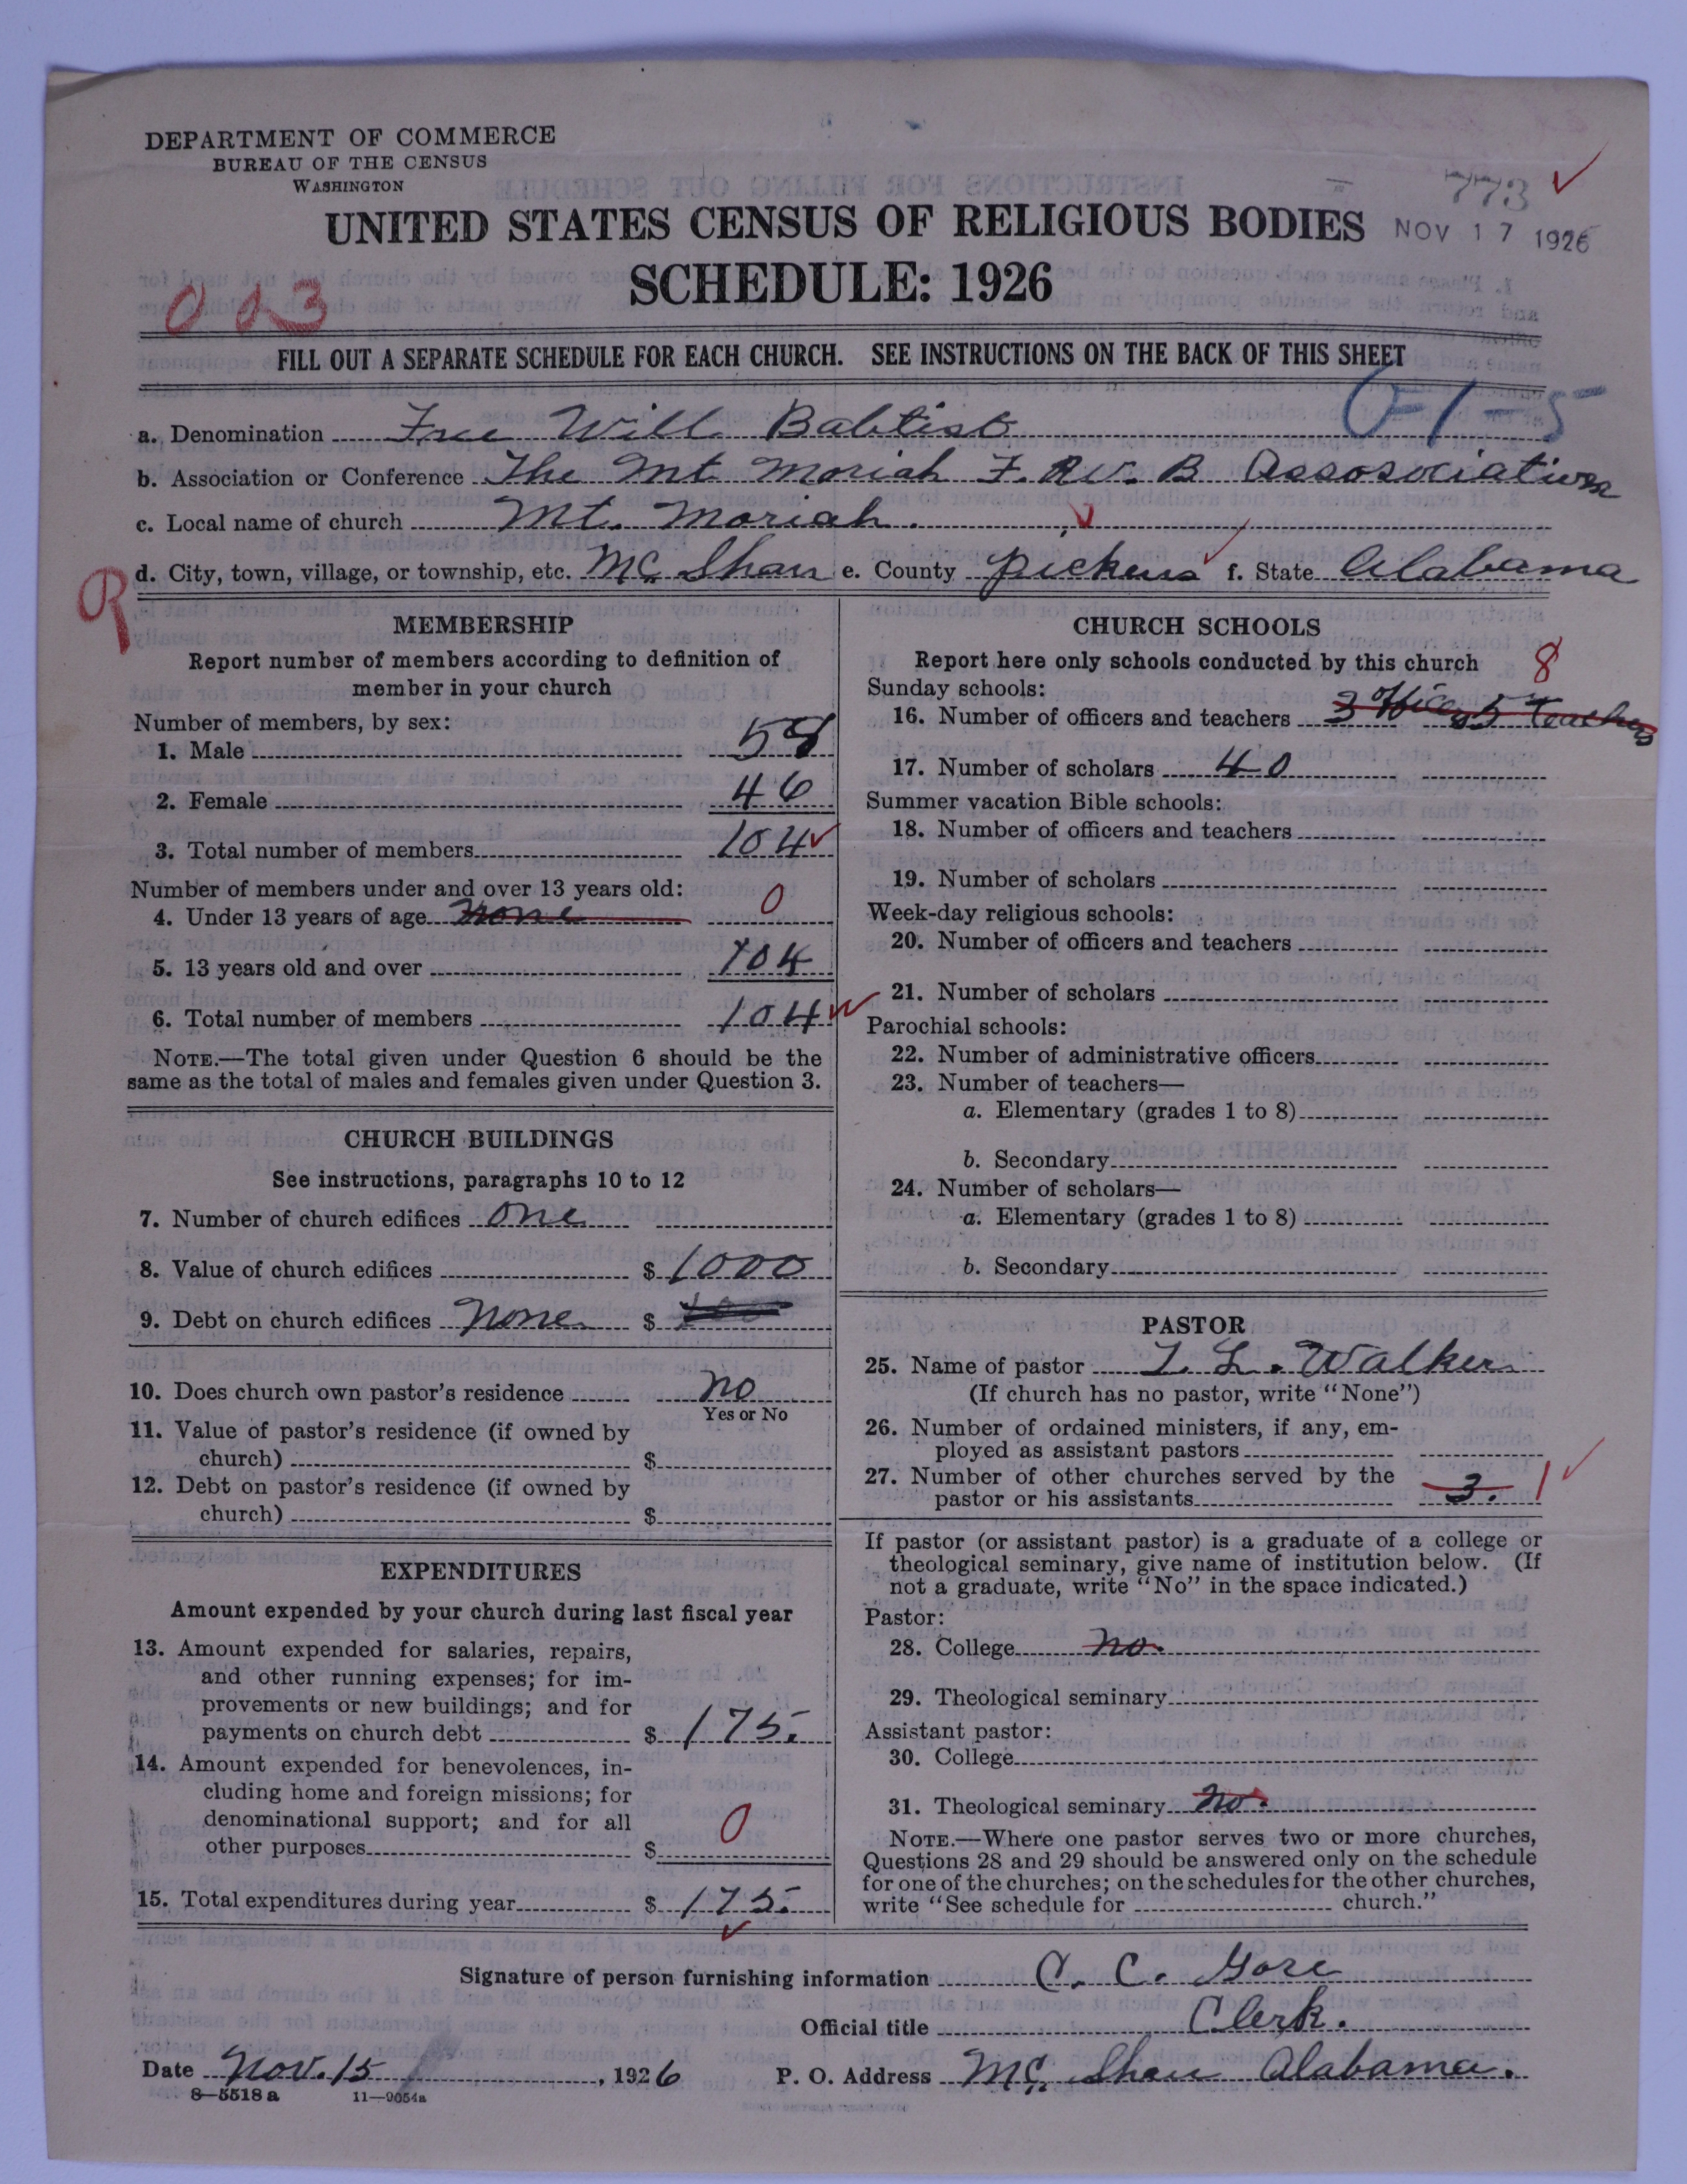 DEPARTMENT OF COMMERCE
BUREAU OF THE CENSUS
WASHINGTON
773
UNITED STATES CENSUS OF RELIGIOUS BODIES NOV 17 1926
SCHEDULE: 1926
003
FILL OUT A SEPARATE SCHEDULE FOR EACH CHURCH. SEE INSTRUCTIONS ON THE BACK OF THIS SHEET
a. Denomination Free Will Babtist
b. Association or Conference The Mt. Moriah F. W. B Assosociation
c. Local name of church Mt. Moriah.
d. City, town, village, or township, etc. Mc Shan e. County Pickens f. State Alabama
MEMBERSHIP
Report number of members according to definition of
member in your church
Number of members, by sex:
1. Male 58
2. Female 46
3. Total number of members 104
Number of members under and over 13 years old:
4. Under 13 years of age none 0
5. 13 years old and over 104
6. Total number of members 104
NOTE.—The total given under Question 6 should be the
same as the total of males and females given under Question 3.
CHURCH BUILDINGS
See instructions, paragraphs 10 to 12
7. Number of church edifices one
8. Value of church edifices $ 1000
9. Debt on church edifices none $
10. Does church own pastor's residence no
Yes or No
11. Value of pastor's residence (if owned by
church) $
12. Debt on pastor's residence (if owned by
church) $
EXPENDITURES
Amount expended by your church during last fiscal year
13. Amount expended for salaries, repairs,
and other running expenses; for im-
provements or new buildings; and for
payments on church debt $ 175.
14. Amount expended for benevolences, in-
cluding home and foreign missions; for
denominational support; and for all
other purposes $ 0
15. Total expenditures during year $ 175.
CHURCH SCHOOLS
Report here only schools conducted by this church 8
Sunday schools:
16. Number of officers and teachers 3 officers 5 Teachers
17. Number of scholars 40
Summer vacation Bible schools:
18. Number of officers and teachers
19. Number of scholars
Week-day religious schools:
20. Number of officers and teachers
21. Number of scholars
Parochial schools:
22. Number of administrative officers
23. Number of teachers—
a. Elementary (grades 1 to 8)
b. Secondary
24. Number of scholars—
a. Elementary (grades 1 to 8)
b. Secondary
PASTOR
25. Name of pastor L. Walker
(If church has no pastor, write "None")
26. Number of ordained ministers, if any, em-
ployed as assistant pastors
27. Number of other churches served by the
pastor or his assistants 3. 1
If pastor (or assistant pastor) is a graduate of a college or
theological seminary, give name of institution below. (If
not a graduate, write "No" in the space indicated.)
Pastor:
28. College no.
29. Theological seminary
Assistant pastor:
30. College
31. Theological seminary no.
NOTE.—Where one pastor serves two or more churches,
Questions 28 and 29 should be answered only on the schedule
for one of the churches; on the schedules for the other churches,
write "See schedule for church."
Signature of person furnishing information C. C. Gore
Official title Clerk.
Date Nov. 15, 1926 P. O. Address Mc. Shan Alabama.
8—5518 a 11—9054a